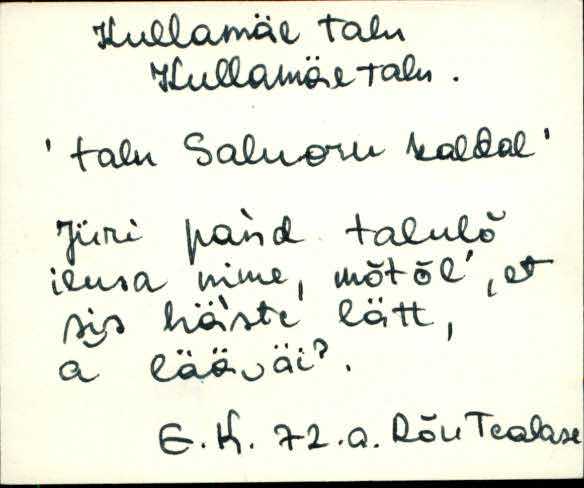 Kullamäe talu
Kullamäe talu.
'talu Saluoru kaldal'
Jüri pańd talulõ
ilusa nime, mõtõĺ, et
sis häste lätt,
a lää äi?.
E. K. 72.a. Rõu Tealase